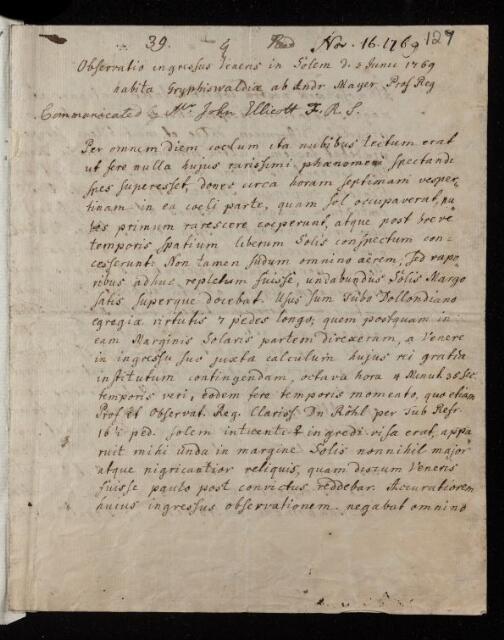 39. Read Nov. 16. 1769 127
Observatio ingressus Veneris in Solem d. 3 Junii 1769
habita Gryphiswaldiæ ab Andr. Mayer Prof Reg
Communicated by Mr. John Ellicott F. R. S.
Per omnem diem coelum ita nubibus tectum erat
ut fere nulla hujus rarissimi phænomeni spectandi
spes superesset, donec circa horam septimam vesper,,
tinam in ea coeli parte, quam sol occupaverat, nu
bes primum rarescere coeperunt, atque post breve
temporis spatium liberum Solis conspectum con,,
cesserunt. Non tamen sudum omnino aërem, sed vapo,,
ribus adhuc repletum fuisse, undabundus Solis Margo
satis superque docebat. Usus sum Tubo Dollondiano
egregiæ virtutis 7 pedes longo; quem postquam in
eam Marginis Solaris partem direxeram, a Venere
in ingressu suo juxta calculum hujus rei gratia
institutum contingendam, octava hora 4 Minut. 35 Sec.
temporis veri, eodem fere temporis momento, quo etiam
Prof. et Observat. Reg. Clariss. Dn Röhl per Tub Refr.
16 ped. Solem intuenti ingredi visa erat, appa
ruit mihi unda in margine Solis nonnihil major
atque nigricantior reliquis, quam discum Veneris
fuisse paulo post convictus reddebar. Accuratiorem
hujus ingressus observationem negabat omnino